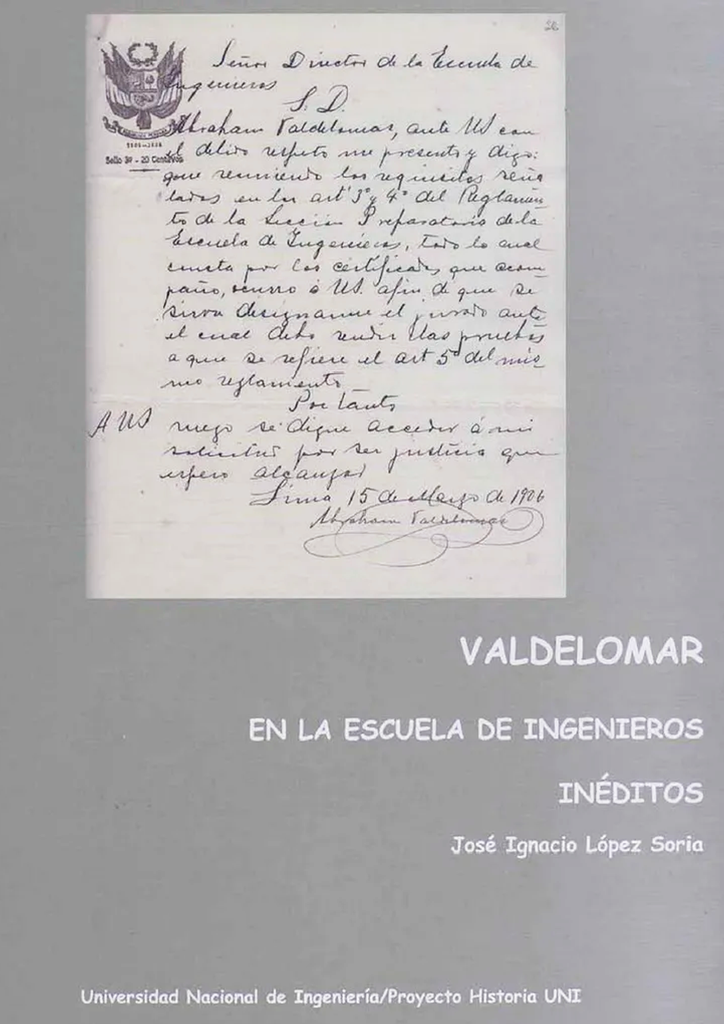 26
Señor Director de la Escuela de
Ingenieros
S. D.
Abraham Valdelomar, ante US con
el debido respeto me presento y digo:
que reuniendo los requisitos seña
lados en los art 3º y 4º del Reglamen
to de la Sección Preparatoria de la
Escuela de Ingenieros, todo lo cual
consta por los certificados que acom
paño, ocurro á US. afin de que se
sirva designarme el jurado ante
el cual debo rendir las pruebas
a que se refiere el art 5º del mis
mo reglamento
Por tanto
A US ruego se digne acceder á mi
solicitud por ser justicia que
espero alcanzar
Lima 15 de Marzo de 1906
Abraham Valdelomar
Sello 3º - 20 Centavos
VALDELOMAR
EN LA ESCUELA DE INGENIEROS
INÉDITOS
José Ignacio López Soria
Universidad Nacional de Ingeniería/Proyecto Historia UNI